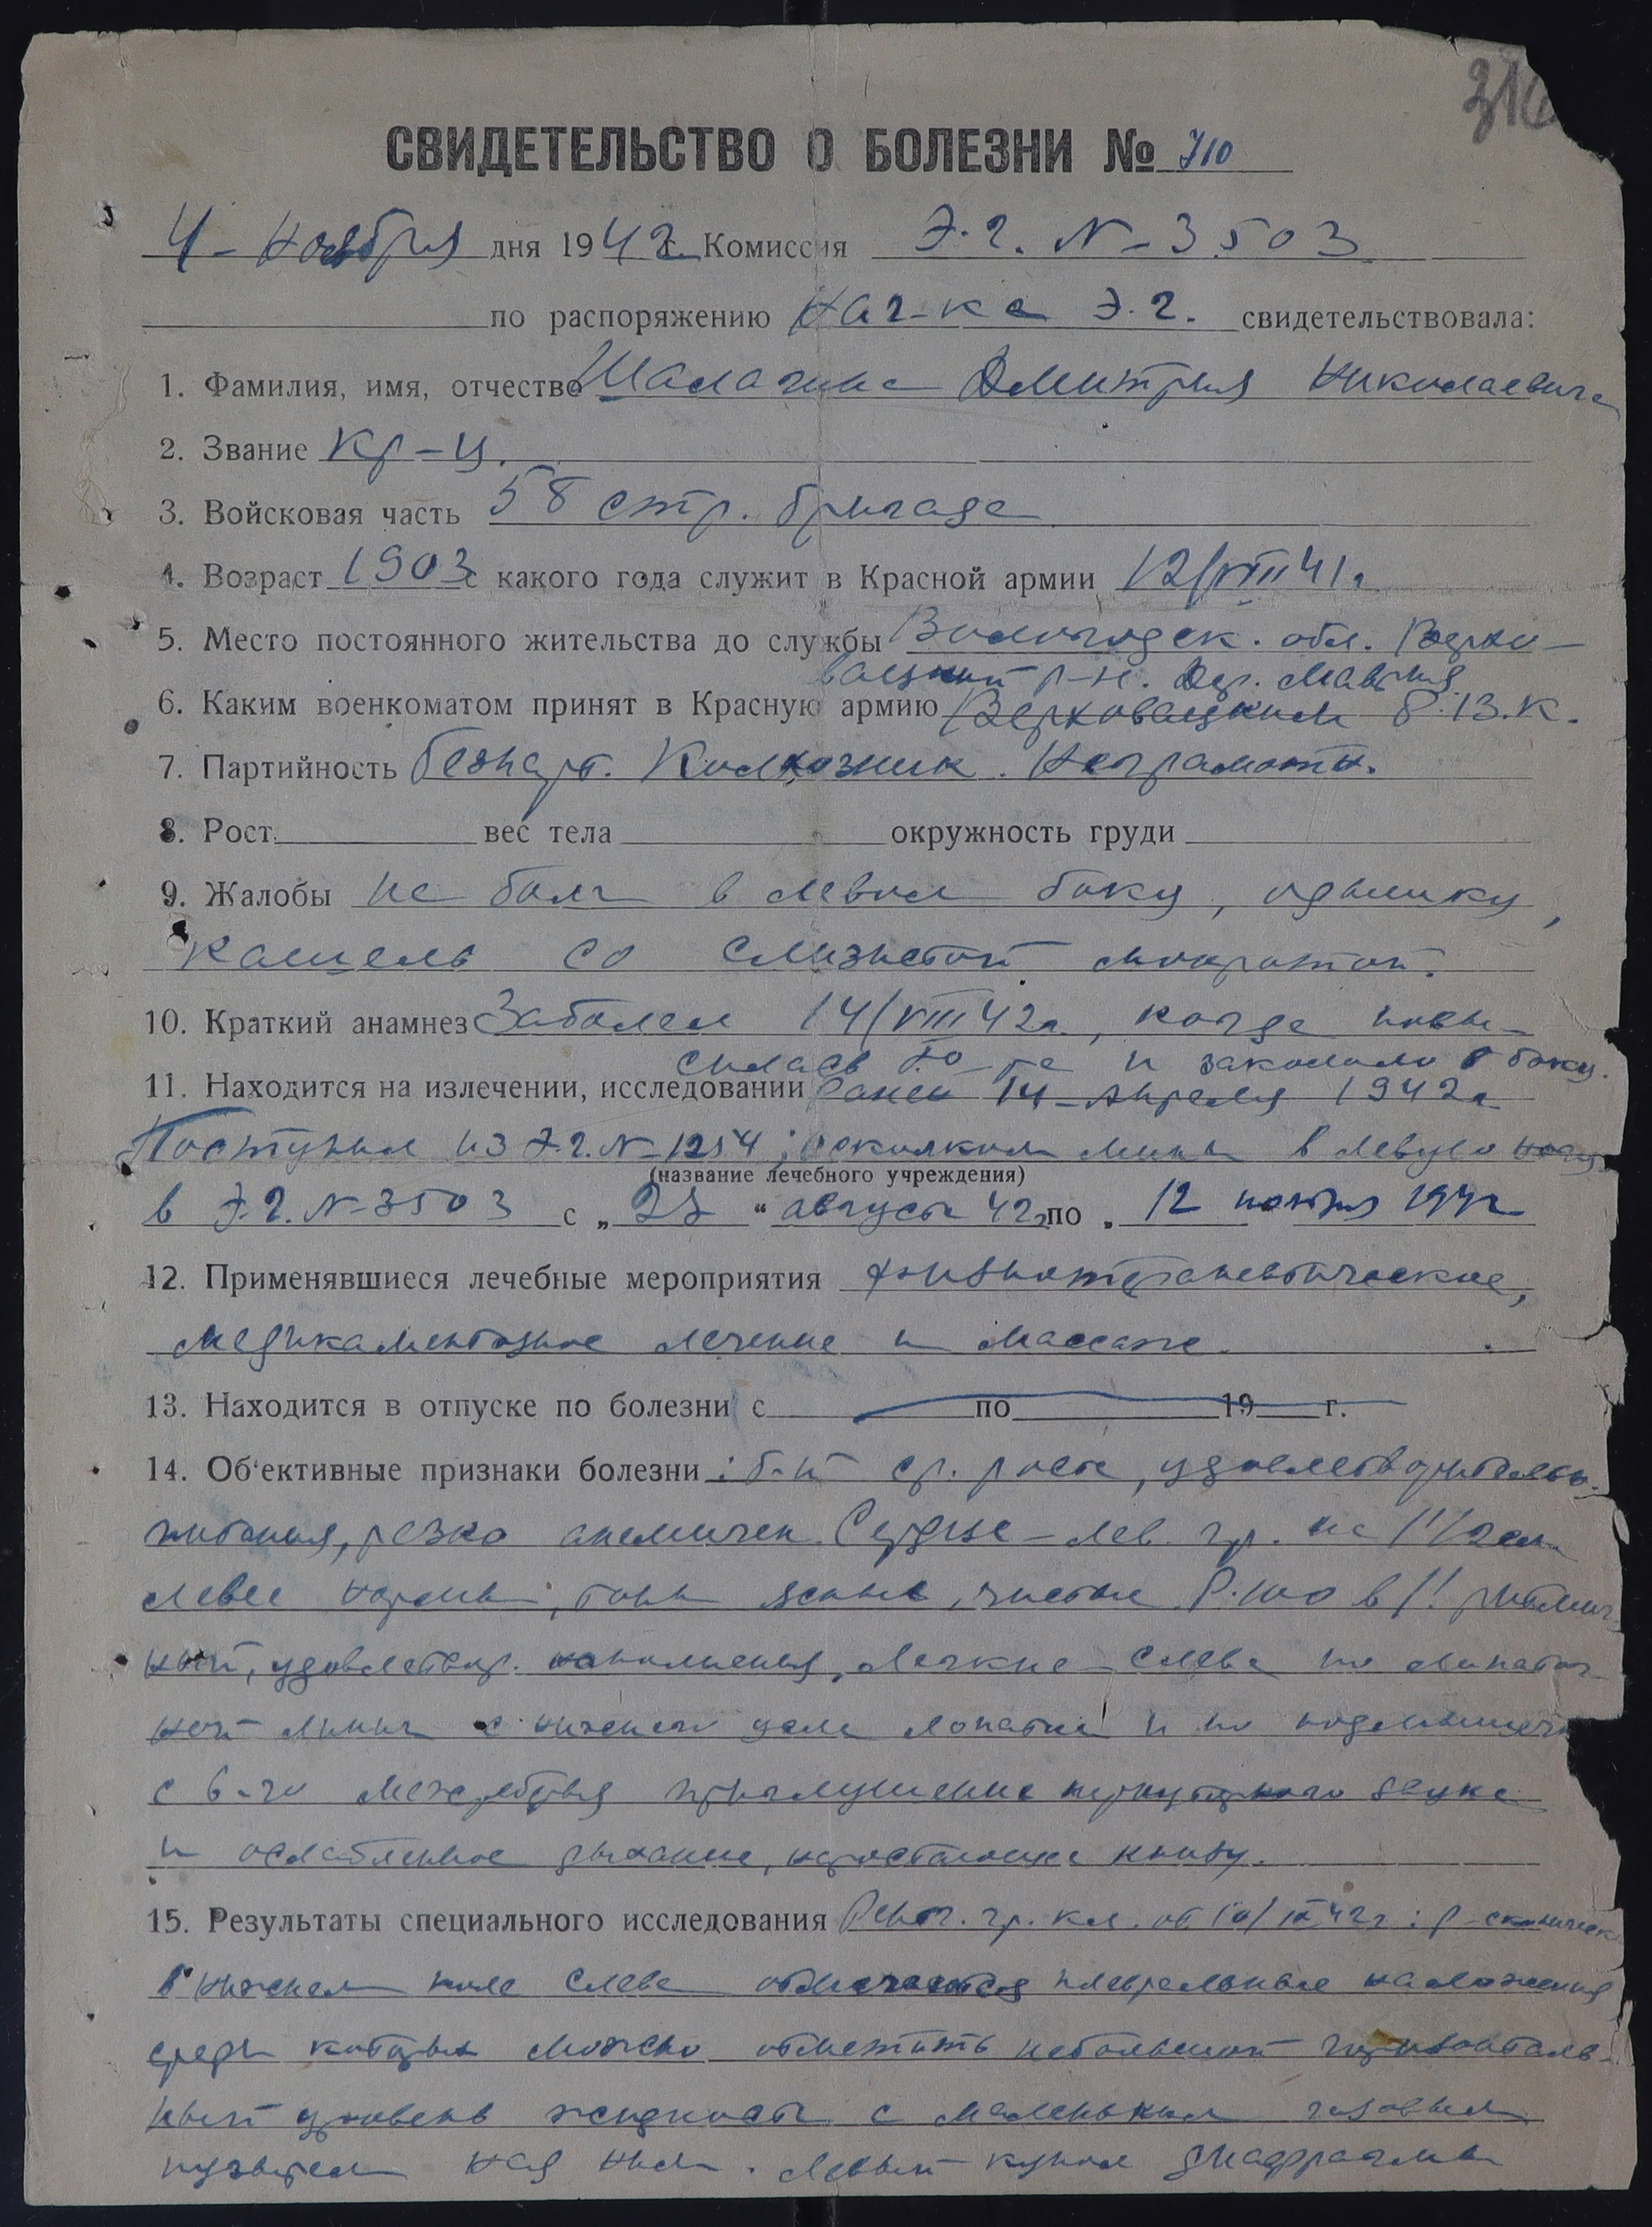 316
СВИДЕТЕЛЬСТВО О БОЛЕЗНИ № 710
4 - ноября дня 1942 г. Комиссия Э.Г. N-3503
по распоряжению Нач-ка Э.Г. свидетельствовала:
1. Фамилия, имя, отчество Шалагина Дмитрия Николаевича
2. Звание Кр-ц.
3. Войсковая часть 58 стр. бригада
4. Возраст 1903 с какого года служит в Красной армии 12/VIII 41г
5. Место постоянного жительства до службы Вологодск. обл. Верхо-
важский р-н. Дер.
6. Каким военкоматом принят в Красную армию Верховажским Р.В.К.
7. Партийность безпарт. Колхозник. Неграмотн.
8. Рост вес тела окружность груди
9. Жалобы на боли в левом боку, одышку,
кашель со слизистой мокротой.
10. Краткий анамнез Заболел 14/VIII 42г., когда повы-
силась то-ра и закололо в боку.
11. Находится на излечении, исследовании ранен 14 - апреля 1942г
Поступил из Э.Г. N-1254; осколком мины в левую ногу
(название лечебного учреждения)
в Э.Г. N-3503 с „ " августа 42г по „ 12 ноября 1942
12. Применявшиеся лечебные мероприятия физиотерапевтическое,
медикаментозное лечение и массаж.
13. Находится в отпуске по болезни с по 19 г.
14. Об'ективные признаки болезни: б-й ср. роста, удовлетворительн.
питания, резко анемичен. Сердце - лев. гр. на 1 1/2 см
левее нормы, тоны ясные, чистые. P. 100 в 1! ритмич-
ный, удовлетвор. наполнения. Легкие - слева по лопаточ-
ной линии с нижнего угла лопатки и по подмышечн
с 6-го межреберья приглушение перкуторного звука
и ослабленное дыхание, нарастающее книзу.
15. Результаты специального исследования Рентг. гр. кл. от 10/IX 42г: Р-скопическ
в нижнем поле слева отмечаются плевральные наложения
среди которых можно отметить небольшой горизонталь-
ный уровень жидкости с маленьким газовым
пузырем над ним. Левый купол диафрагмы